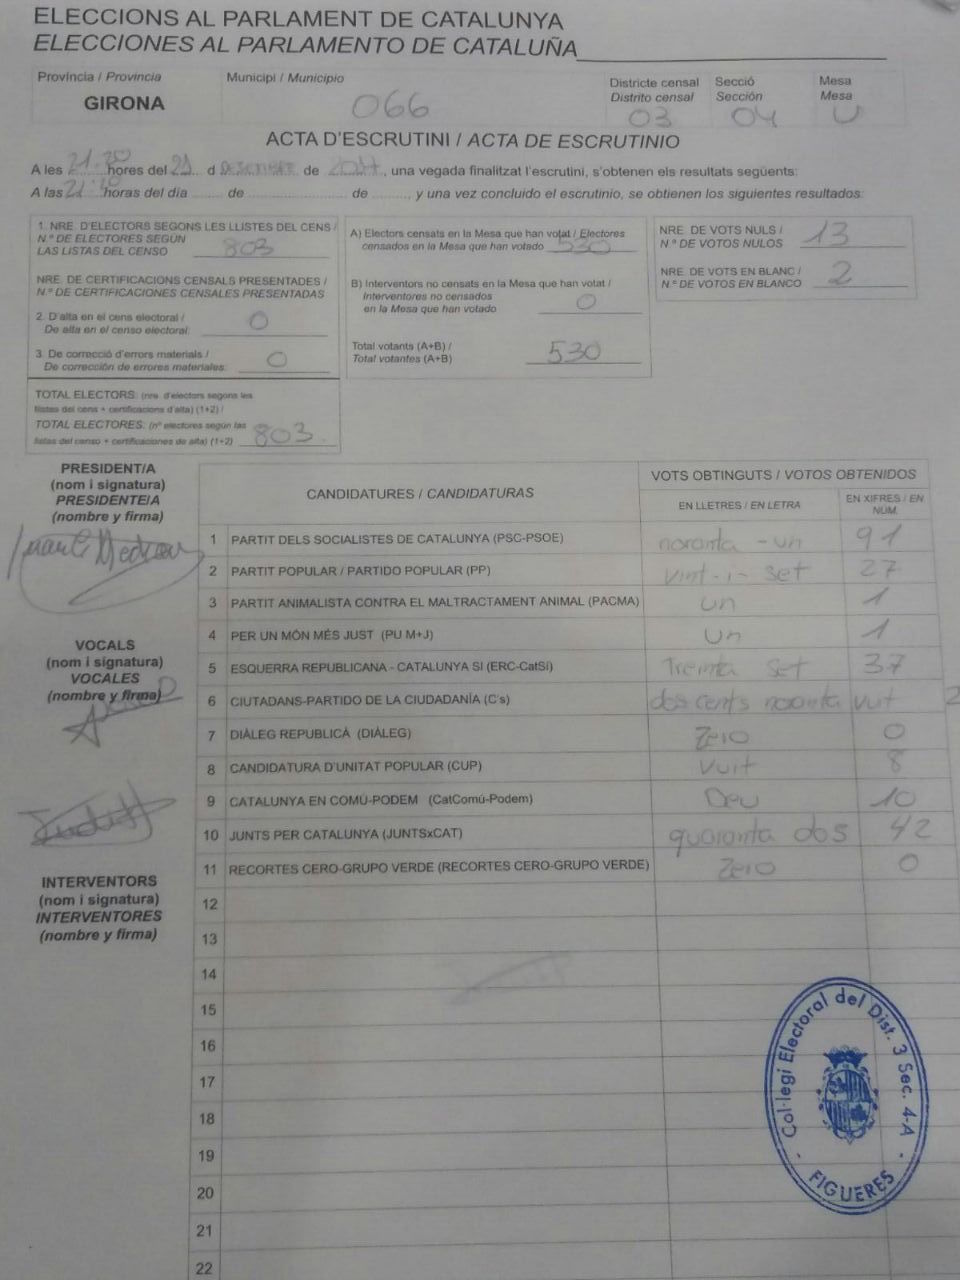 ELECCIONS AL PARLAMENT DE CATALUNYA
ELECCIONES AL PARLAMENTO DE CATALUÑA
Província / Provincia
GIRONA
Municipi / Municipio
066
Districte censal
Distrito censal
03
Secció
Sección
04
Mesa
Mesa
U
ACTA D'ESCRUTINI / ACTA DE ESCRUTINIO
A les 21:20 hores del 21 d DESEMBRE de 2017, una vegada finalitzat l'escrutini, s'obtenen els resultats següents:
A las horas del día de de , y una vez concluido el escrutinio, se obtienen los siguientes resultados:
1. NRE. D'ELECTORS SEGONS LES LLISTES DEL CENS /
N.º DE ELECTORES SEGÚN
LAS LISTAS DEL CENSO 803
NRE. DE CERTIFICACIONS CENSALS PRESENTADES /
N.º DE CERTIFICACIONES CENSALES PRESENTADAS
2. D'alta en el cens electoral /
De alta en el censo electoral: 0
3. De correcció d'errors materials /
De corrección de errores materiales: 0
TOTAL ELECTORS: (nre. d'electors segons les
llistes del cens + certificacions d'alta) (1+2) /
TOTAL ELECTORES: (nº electores según las
listas del censo + certificaciones de alta) (1+2) 803
A) Electors censats en la Mesa que han votat / Electores
censados en la Mesa que han votado 530
B) Interventors no censats en la Mesa que han votat /
Interventores no censados
en la Mesa que han votado 0
Total votants (A+B) /
Total votantes (A+B) 530
NRE. DE VOTS NULS /
N.º DE VOTOS NULOS 13
NRE. DE VOTS EN BLANC /
N.º DE VOTOS EN BLANCO 2
PRESIDENT/A
(nom i signatura)
PRESIDENTE/A
(nombre y firma)
VOCALS
(nom i signatura)
VOCALES
(nombre y firma)
INTERVENTORS
(nom i signatura)
INTERVENTORES
(nombre y firma)
CANDIDATURES / CANDIDATURAS
VOTS OBTINGUTS / VOTOS OBTENIDOS
EN LLETRES / EN LETRA
EN XIFRES / EN
NÚM.
1 PARTIT DELS SOCIALISTES DE CATALUNYA (PSC-PSOE) noranta-un 91
2 PARTIT POPULAR / PARTIDO POPULAR (PP) vint-i-set 27
3 PARTIT ANIMALISTA CONTRA EL MALTRACTAMENT ANIMAL (PACMA) un 1
4 PER UN MÓN MÉS JUST (PU M+J) un 1
5 ESQUERRA REPUBLICANA - CATALUNYA SÍ (ERC-CatSí) Treinta set 37
6 CIUTADANS-PARTIDO DE LA CIUDADANÍA (C's) dos cents noranta vuit 2
7 DIÀLEG REPUBLICÀ (DIÀLEG) Zero 0
8 CANDIDATURA D'UNITAT POPULAR (CUP) Vuit 8
9 CATALUNYA EN COMÚ-PODEM (CatComú-Podem) Deu 10
10 JUNTS PER CATALUNYA (JUNTSxCAT) quaranta dos 42
11 RECORTES CERO-GRUPO VERDE (RECORTES CERO-GRUPO VERDE) Zero 0
12
13
14
15
16
17
18
19
20
21
22
Col·legi Electoral del Dist. 3 Sec. 4-A
- FIGUERES -